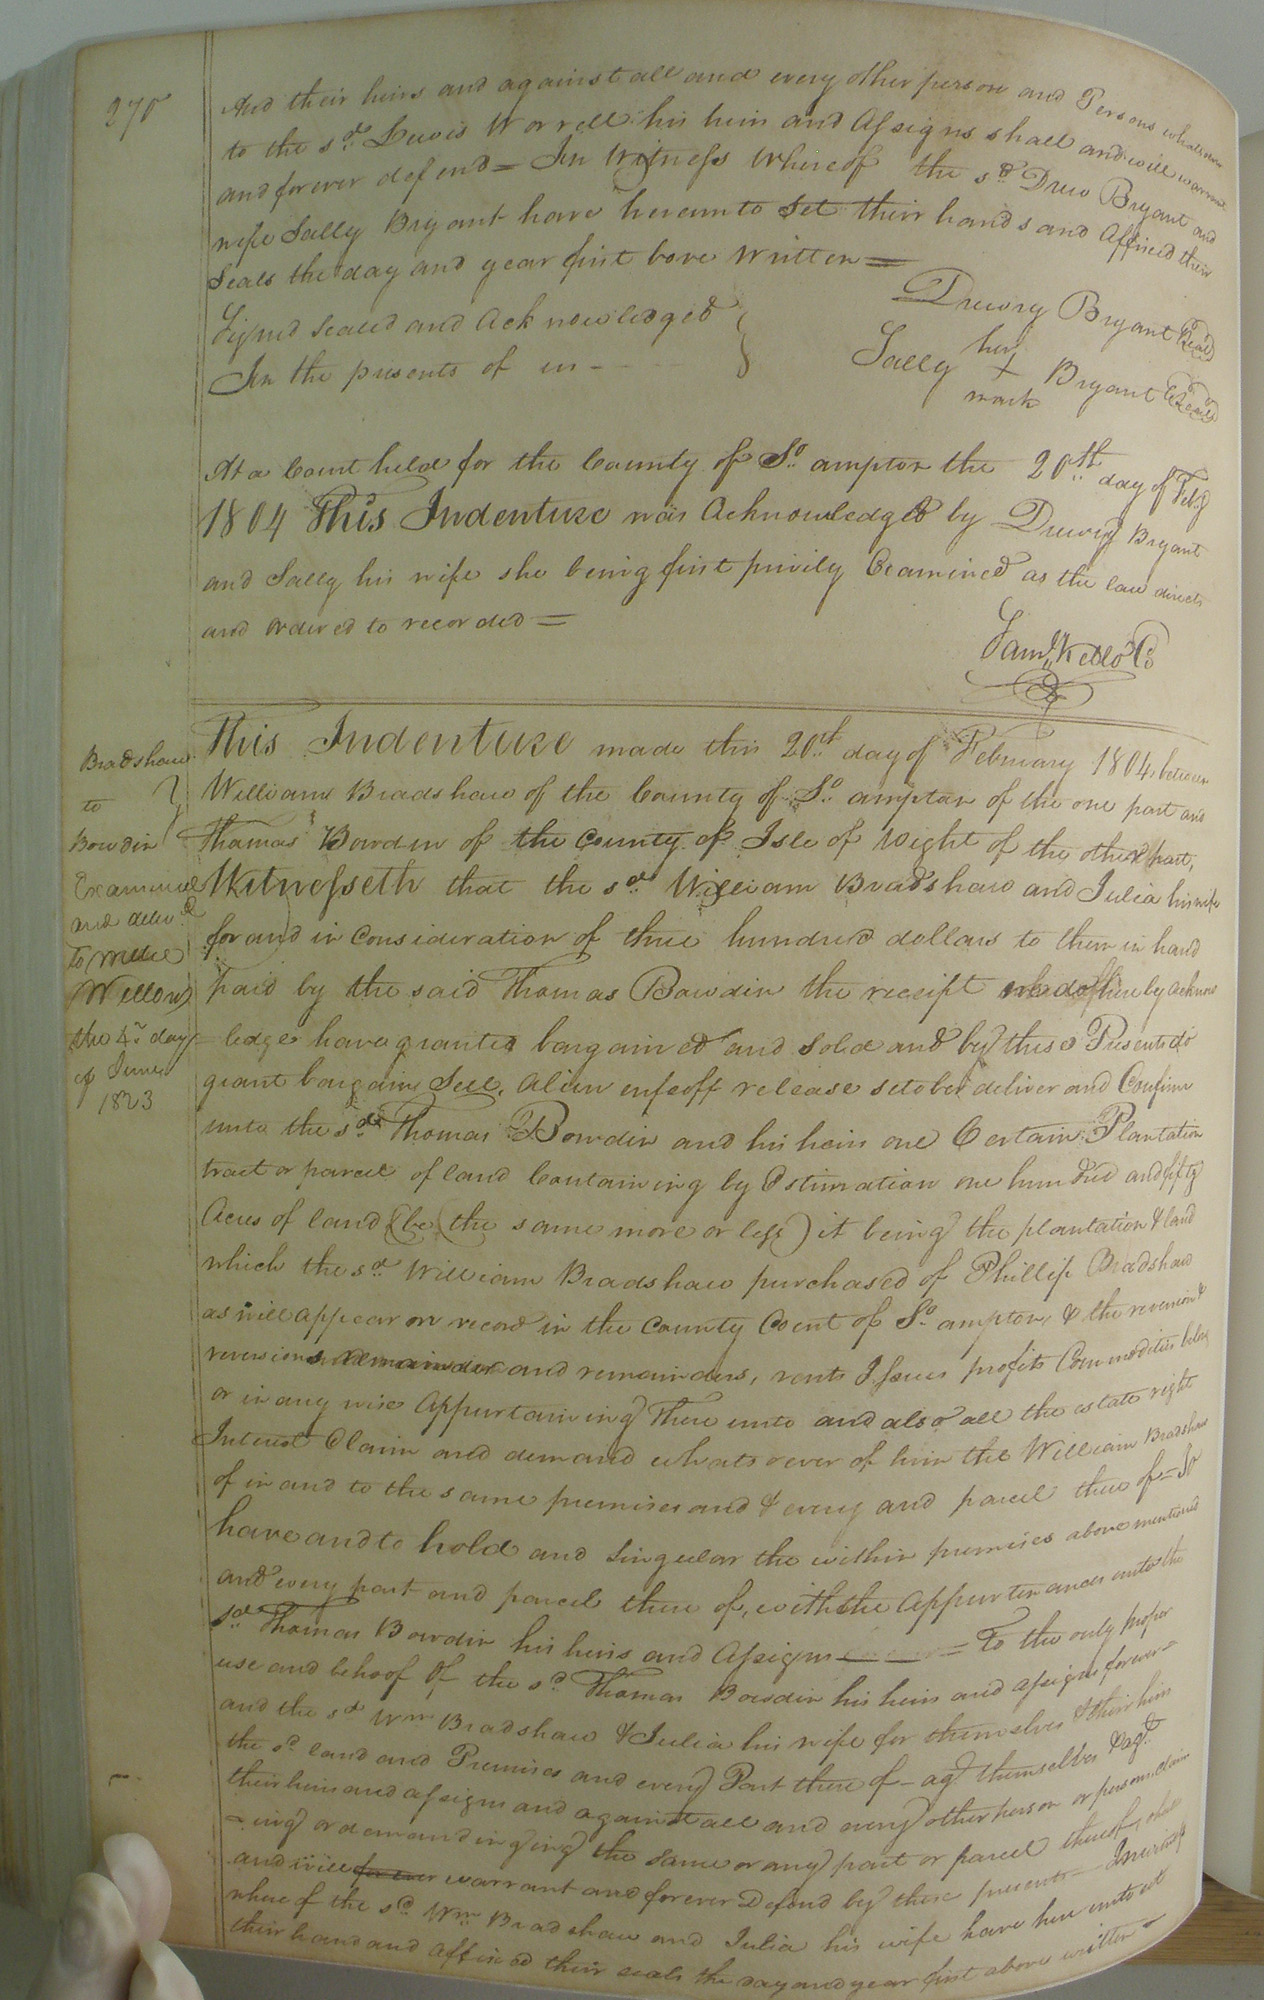 270
And their heirs and against all and every other person and Persons whatsoever
to the sd. Lewis Worrell his heirs and Assigns shall and will warrant
and forever defend = In Witness Whereof the sd Drew Bryant and
wife Sally Bryant have hereunto Set their hands and Affixed their
Seals the day and year first bove Written =
Drewry Bryant Seal
Signd Sealed and Acknowledged
In the presents of us -
Sally her X mark Bryant Seal
At a Court held for the County of So. ampton the 20th day of Feby
1804 This Indenture was Acknowledged by Drewry Bryant
and Sally his wife she being first privily Examined as the law directs
and ordered to recorded =
Saml. Kello Cs
Bradshaw
to
Bowdin
Examined
and delivd
to Willie
the 4th day
of June
1823
This Indenture made this 20th day of February 1804 between
William Bradshaw of the County of So. ampton of the one part and
Thomas Bowdin of the County of Isle of Wight of the other part,
Witnesseth that the sd. William Bradshaw and Julia his wife
for and in Consideration of three hundred dollars to them in hand
paid by the said Thomas Bowdin the receipt we do hereby acknow
= ledge have granted bargained and Sold and by these Presents do
grant bargain, Sell, alien enfeoff release setober deliver and Confirm
unto the sd. Thomas Bowdin and his heirs one Certain Plantation
tract or parcel of land Containing by Estimation one hundred and fifty
Acres of land (be (the same more or less) it being the plantation & land
which the sd. William Bradshaw purchased of Phillip Bradshaw
as will appear on record in the County Court of So. ampton, & the reversion &
reversions remainder and remainders, rents Issues profits Commodities belong
or in any wise Appurtaining There unto and also all the estate right
Interest Claim and demand whatsoever of him the William Bradshaw
of in and to the same premises and & every and parcel there of = To
have and to hold and Singular the within premises above mentioned
and every part and parcel there of, with the Appurtenances unto the
sd. Thomas Bowdin his heirs and Assigns = To the only proper
use and behoof Of the sd Thomas Bowdin his heirs and assigns forever =
and the sd Wm Bradshaw & Julia his wife for themselves & their heirs
the sd land and Premises and every Part there of - agt themselves & agt.
their heirs and assigns and against all and every other person or persons claim
= ing or demandinging the same or any part or parcel thereof, shall
and will forever warrant and forever Defend by these presents - In witness
where of the sd Wm Bradshaw and Julia his wife have here unto set
their hand and affixed their seals the day and year first above written =